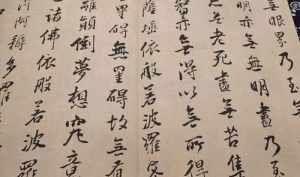 無眼界乃至無
亦無無明盡乃
老死盡無苦集
智亦無得以無所得
薩埵依般若波羅
礙無罣礙故無有
顛倒夢想究竟
諸佛依般若波羅
阿耨多羅